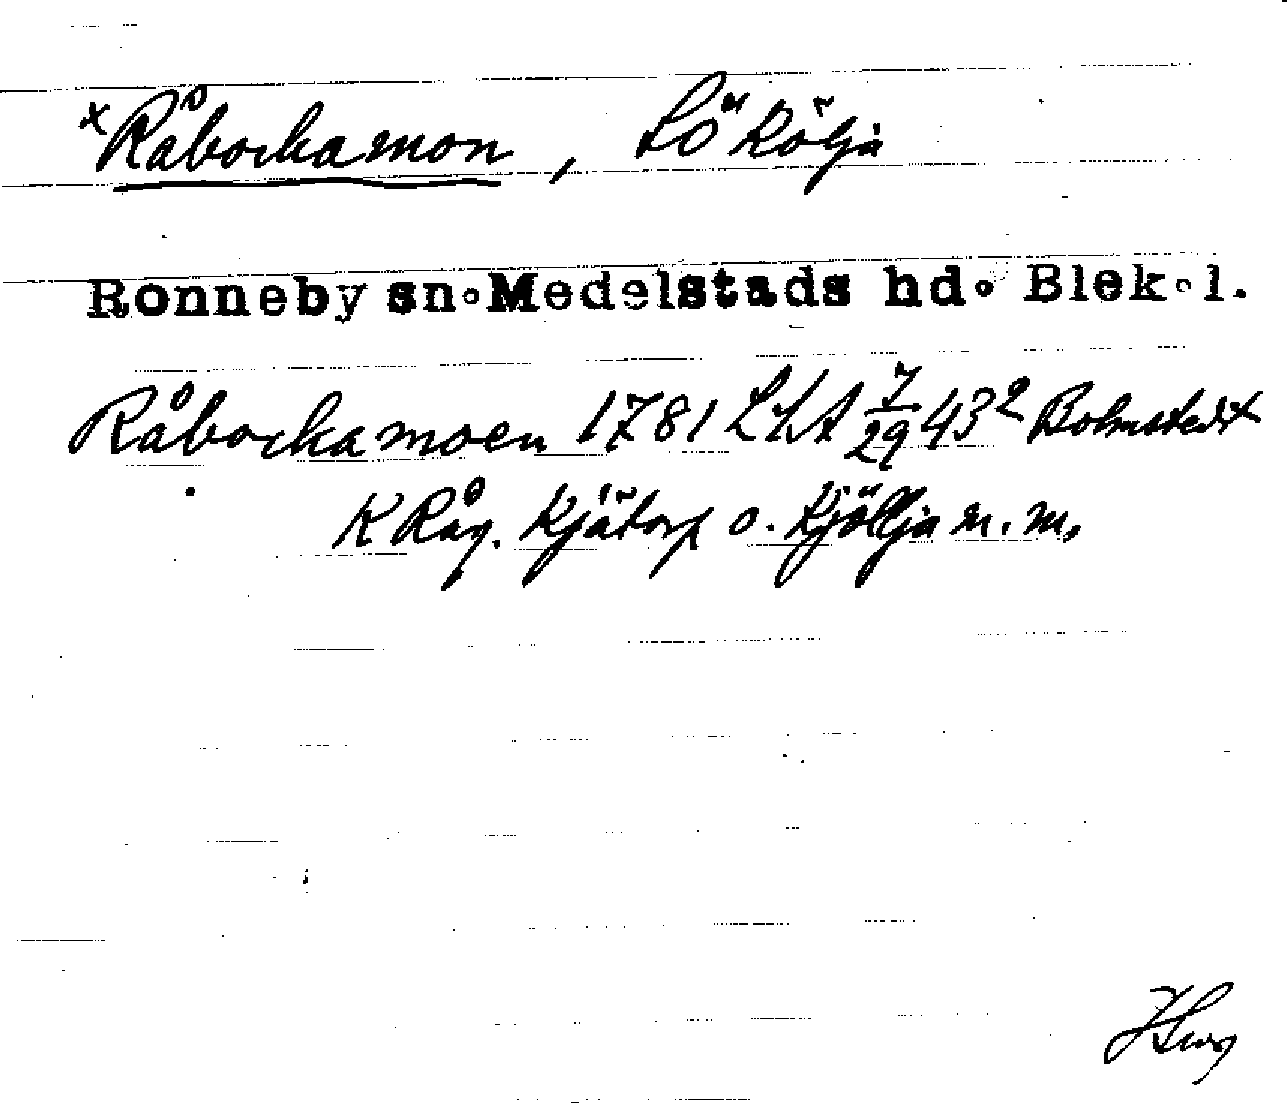 ×Råbockamon, SÖ Kölja
Ronneby sn. Medelstads hd. Blek. l.
Råbockamoen 1781 LSA 7/29 43² Bolmstedt
K Råg. Kjätorp o. Kjöllja m. m.